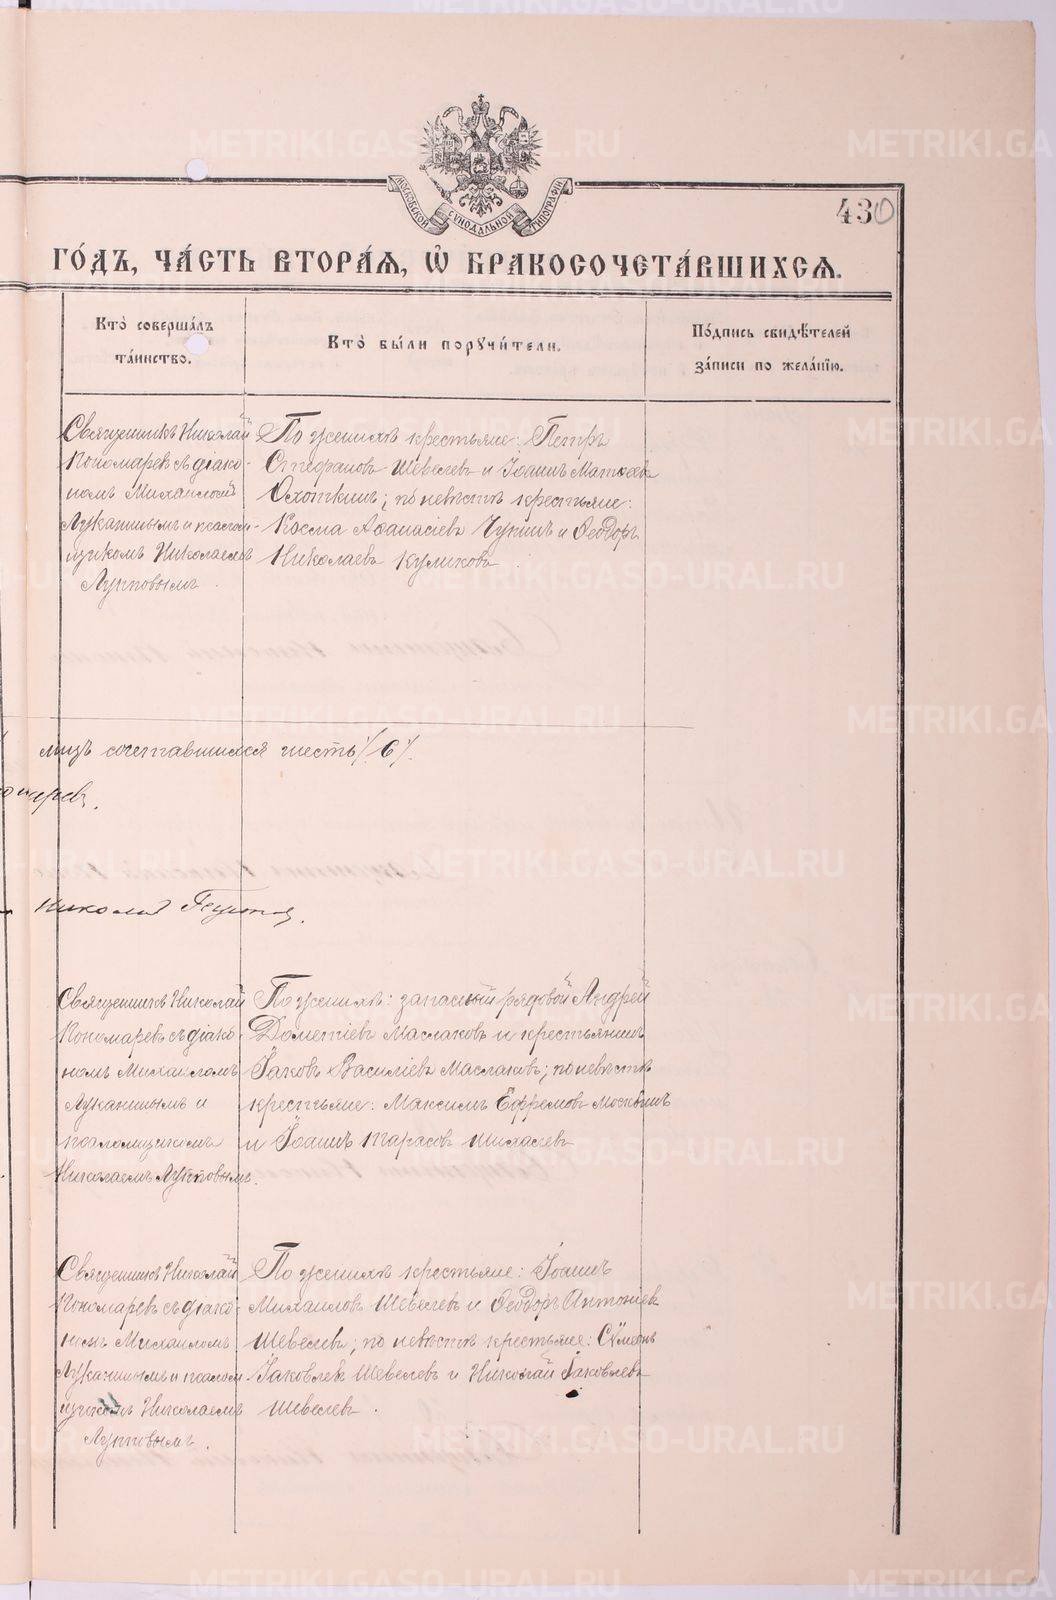 МОСКОВСКОЙ СѴНОДАЛЬНОЙ ТИПОГРАФІИ
430
ГО́ДЪ, ЧА́СТЬ ВТОРА́Я, Ѡ҆ БРАКОСОЧЕТА́ВШИХСЯ.
Кто̀ соверша́лъ
та́инство.
Кто̀ бы́ли порꙋчи́тели.
По́дпись свидѣ́телей
за́писи по жела́нїю.
Священникъ Николай
Пономаревъ съ діако-
номъ Михаиломъ
Луканинымъ и псалом-
щикомъ Николаемъ
Лупповымъ.
По женихѣ крестьяне: Петръ
Стефановъ Шевелевъ и Іоаннъ Матѳеевъ
Охоткинъ; по невѣстѣ крестьяне:
Косма Аѳанасіевъ Чукинъ и Ѳеодоръ
Николаевъ Куликовъ.
лицъ сочетавшихся шесть /6/.
Николай
Священникъ Николай
Пономаревъ съ діако-
номъ Михаиломъ
Луканинымъ и
псаломщикомъ
Николаемъ Лупповымъ.
По женихѣ: запасный рядовой Андрей
Дометіевъ Маслаковъ и крестьянинъ
Іаковъ Василіевъ Маслаковъ; по невѣстѣ
крестьяне: Максимъ Ефремовъ
и Іоаннъ Тарасовъ
Священникъ Николай
Пономаревъ съ діако-
номъ Михаиломъ
Луканинымъ и псалом
щикомъ Николаемъ
Лупповымъ.
По женихѣ крестьяне: Іоаннъ
Михаиловъ Шевелевъ и Ѳеодоръ Антоніевъ
Шевелевъ; по невѣстѣ крестьяне: Сѵмеонъ
Іаковлевъ Шевелевъ и Николай Іаковлевъ
Шевелевъ.
METRIKI.GASO-URAL.RU